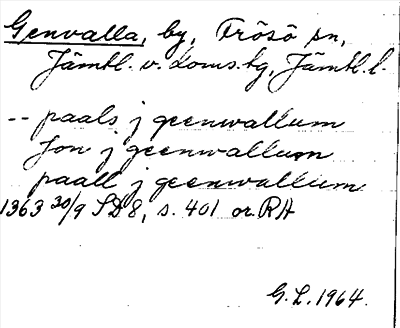 Genvalla, by, Frösö sn,
Jämtl. v. doms.hg, Jämtl. l.
-- paals j geenwallum
Jon j geenwallum
paall j geenwallum
1363 30/9 SD 8, s. 401 or. RA
G. L. 1964.